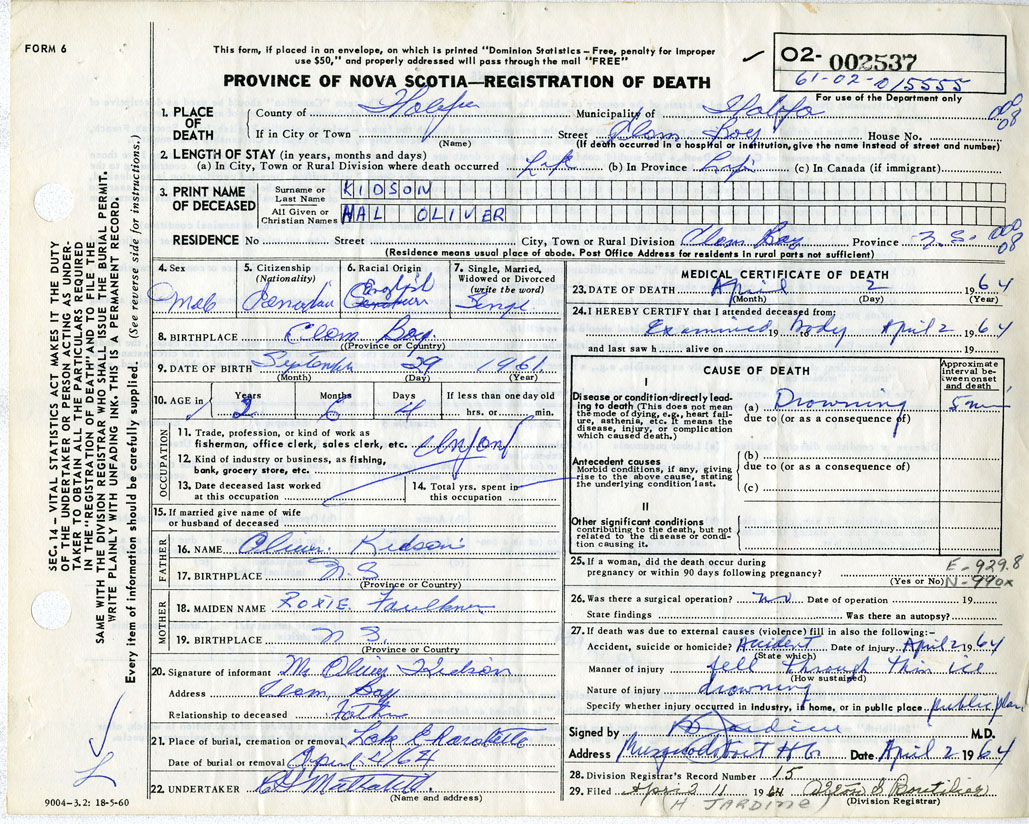 FORM 6
This form, if placed in an envelope, on which is printed "Dominion Statistics – Free, penalty for improper
use $50," and properly addressed will pass through the mail "FREE"
PROVINCE OF NOVA SCOTIA—REGISTRATION OF DEATH
02- 002537
61-02-015555
For use of the Department only
1. PLACE OF DEATH
County of Halifax Municipality of Halifax
If in City or Town (Name) Street Clam Bay House No.
(If death occurred in a hospital or institution, give the name instead of street and number)
000
08
2. LENGTH OF STAY (in years, months and days)
(a) In City, Town or Rural Division where death occurred Life (b) In Province Life (c) In Canada (if immigrant)
3. PRINT NAME OF DECEASED
Surname or Last Name KIDSON
All Given or Christian Names HAL OLIVER
RESIDENCE No Street City, Town or Rural Division Clam Bay Province N.S.
000
08
(Residence means usual place of abode. Post Office Address for residents in rural parts not sufficient)
4. Sex Male
5. Citizenship (Nationality) Canadian
6. Racial Origin English
7. Single, Married, Widowed or Divorced (write the word) Single
8. BIRTHPLACE Clam Bay
(Province or Country)
9. DATE OF BIRTH September 29 1961
(Month) (Day) (Year)
10. AGE in Years 2 Months 6 Days 4 If less than one day old hrs. or min.
OCCUPATION
11. Trade, profession, or kind of work as
fisherman, office clerk, sales clerk, etc. Infant
12. Kind of industry or business, as fishing,
bank, grocery store, etc.
13. Date deceased last worked
at this occupation
14. Total yrs. spent in
this occupation
15. If married give name of wife
or husband of deceased
FATHER
16. NAME Oliver Kidson
17. BIRTHPLACE N.S
(Province or Country)
MOTHER
18. MAIDEN NAME ROXIE Faulkner
19. BIRTHPLACE N S.
(Province or Country)
20. Signature of informant Mr Oliver Kidson
Address Clam Bay
Relationship to deceased Father
21. Place of burial, cremation or removal Lake Charlotte
Date of burial or removal April 4/64
22. UNDERTAKER
(Name and address)
9004–3.2: 18-5-60
MEDICAL CERTIFICATE OF DEATH
23. DATE OF DEATH April 2 1964
(Month) (Day) (Year)
24. I HEREBY CERTIFY that I attended deceased from:
Examined 19 to Body April 2 1964
and last saw h alive on 19
CAUSE OF DEATH
Approximate interval between onset and death
I
Disease or condition directly leading
to death (This does not mean
the mode of dying, e.g., heart failure,
asthenia, etc. It means the
disease, injury, or complication
which caused death.)
(a) Drowning 5 min
due to (or as a consequence of)
Antecedent causes
Morbid conditions, if any, giving
rise to the above cause, stating
the underlying condition last.
(b)
due to (or as a consequence of)
(c)
II
Other significant conditions
contributing to the death, but not
related to the disease or condition
causing it.
25. If a woman, did the death occur during
pregnancy or within 90 days following pregnancy?
(Yes or No)
E-929.8
N-990x
26. Was there a surgical operation? no Date of operation 19
State findings Was there an autopsy?
27. If death was due to external causes (violence) fill in also the following:–
Accident, suicide or homicide? Accident Date of injury April 2 1964
(State which)
Manner of injury fell through thin ice
(How sustained)
Nature of injury drowning
Specify whether injury occurred in industry, in home, or in public place public place
Signed by Jardine M.D.
Address Musquodoboit Hbr. Date April 2 1964
28. Division Registrar's Record Number 15
29. Filed April 11 1964 Boutilier
(H JARDINE) (Division Registrar)
SEC. 14 – VITAL STATISTICS ACT MAKES IT THE DUTY
OF THE UNDERTAKER OR PERSON ACTING AS UNDERTAKER
TO OBTAIN ALL THE PARTICULARS REQUIRED
IN THE "REGISTRATION OF DEATH" AND TO FILE THE
SAME WITH THE DIVISION REGISTRAR WHO SHALL ISSUE THE BURIAL PERMIT.
WRITE PLAINLY WITH UNFADING INK. THIS IS A PERMANENT RECORD.
Every item of information should be carefully supplied. (See reverse side for instructions.)